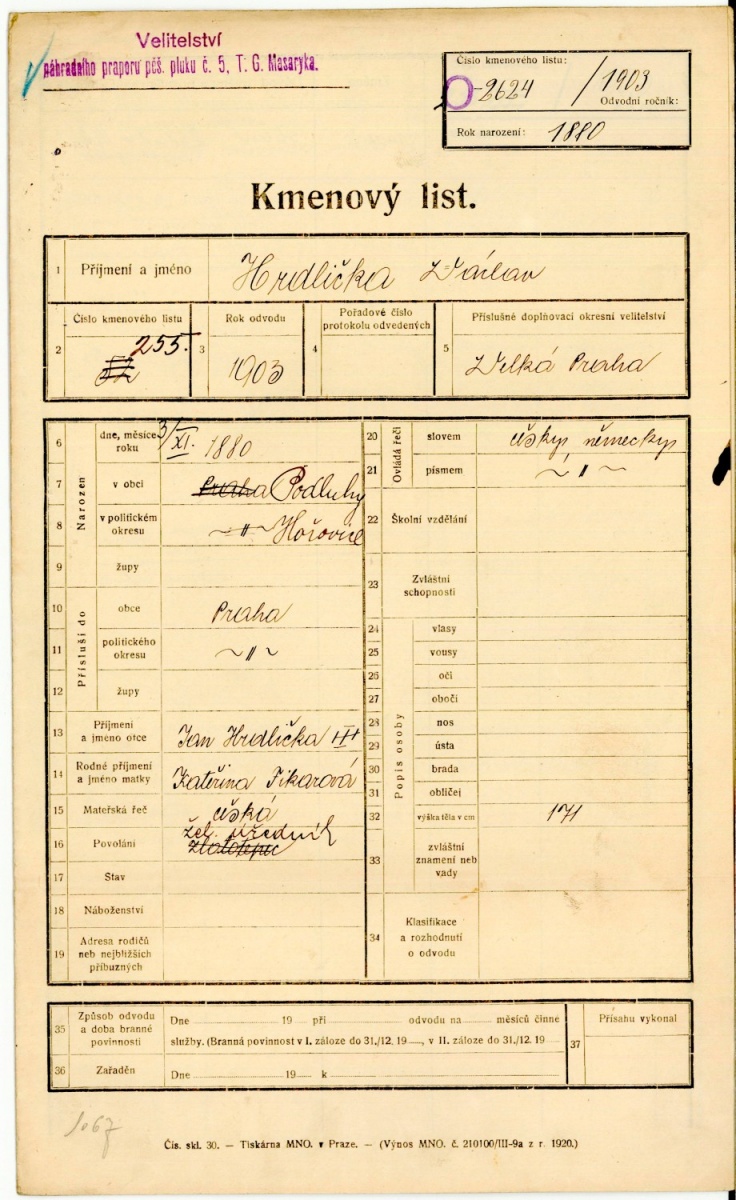 Velitelství
náhradního praporu pěš. pluku č. 5, T. G. Masaryka.
Číslo kmenového listu:
2624 / 1903
Odvodní ročník:
Rok narození: 1880
Kmenový list.
1 Příjmení a jméno Hrdlička Václav
Číslo kmenového listu Rok odvodu Pořadové číslo protokolu odvedených Příslušné doplňovací okresní velitelství
2 255. 3 1903 4 5 Velká Praha
Narozen
6 dne, měsíce roku 3/XI. 1880
7 v obci Praha Podluhy
8 v politickém okresu Hořovice
9 župy
Přísluší do
10 obce Praha
11 politického okresu ~ " ~
12 župy
13 Příjmení a jméno otce Jan Hrdlička
14 Rodné příjmení a jméno matky Kateřina Fikarová
15 Mateřská řeč česká
16 Povolání žel. úředník
17 Stav
18 Náboženství
19 Adresa rodičů neb nejbližších příbuzných
Ovládá řeči
20 slovem česky, německy
21 písmem ~ " ~
22 Školní vzdělání
23 Zvláštní schopnosti
Popis osoby
24 vlasy
25 vousy
26 oči
27 obočí
28 nos
29 ústa
30 brada
31 obličej
32 výška těla v cm 171
33 zvláštní znamení neb vady
34 Klasifikace a rozhodnutí o odvodu
35 Způsob odvodu a doba branné povinnosti Dne 19 při odvodu na měsíců činné
služby. (Branná povinnost v I. záloze do 31./12. 19 , v II. záloze do 31./12. 19
36 Zařaděn Dne 19 k
37 Přísahu vykonal
1067
Čís. skl. 30. — Tiskárna MNO. v Praze. — (Výnos MNO. č. 210100/III-9a z r. 1920.)